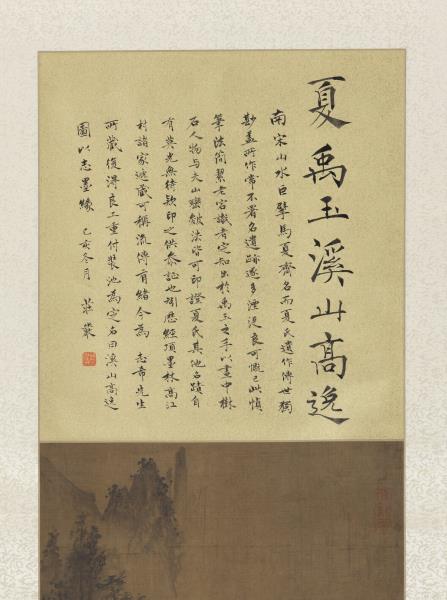 夏禹玉溪山高逸
南宋山水巨擘馬夏齊名而夏氏遺作傳世獨
尠蓋所作常不署名遺跡遂多湮沒良可慨已此幀
筆法簡絜老宕識者定知出於禹玉之手以畫中樹
石人物與夫山巒皴法皆可印證夏氏其他名蹟自
有其光無待款印之供參証也歷經項墨林高江
村諸家遞藏可稱流傳有緒今為志希先生
所藏復得良工重付裝池為定名曰溪山高逸
圖以志墨緣 乙亥冬月 莊嚴